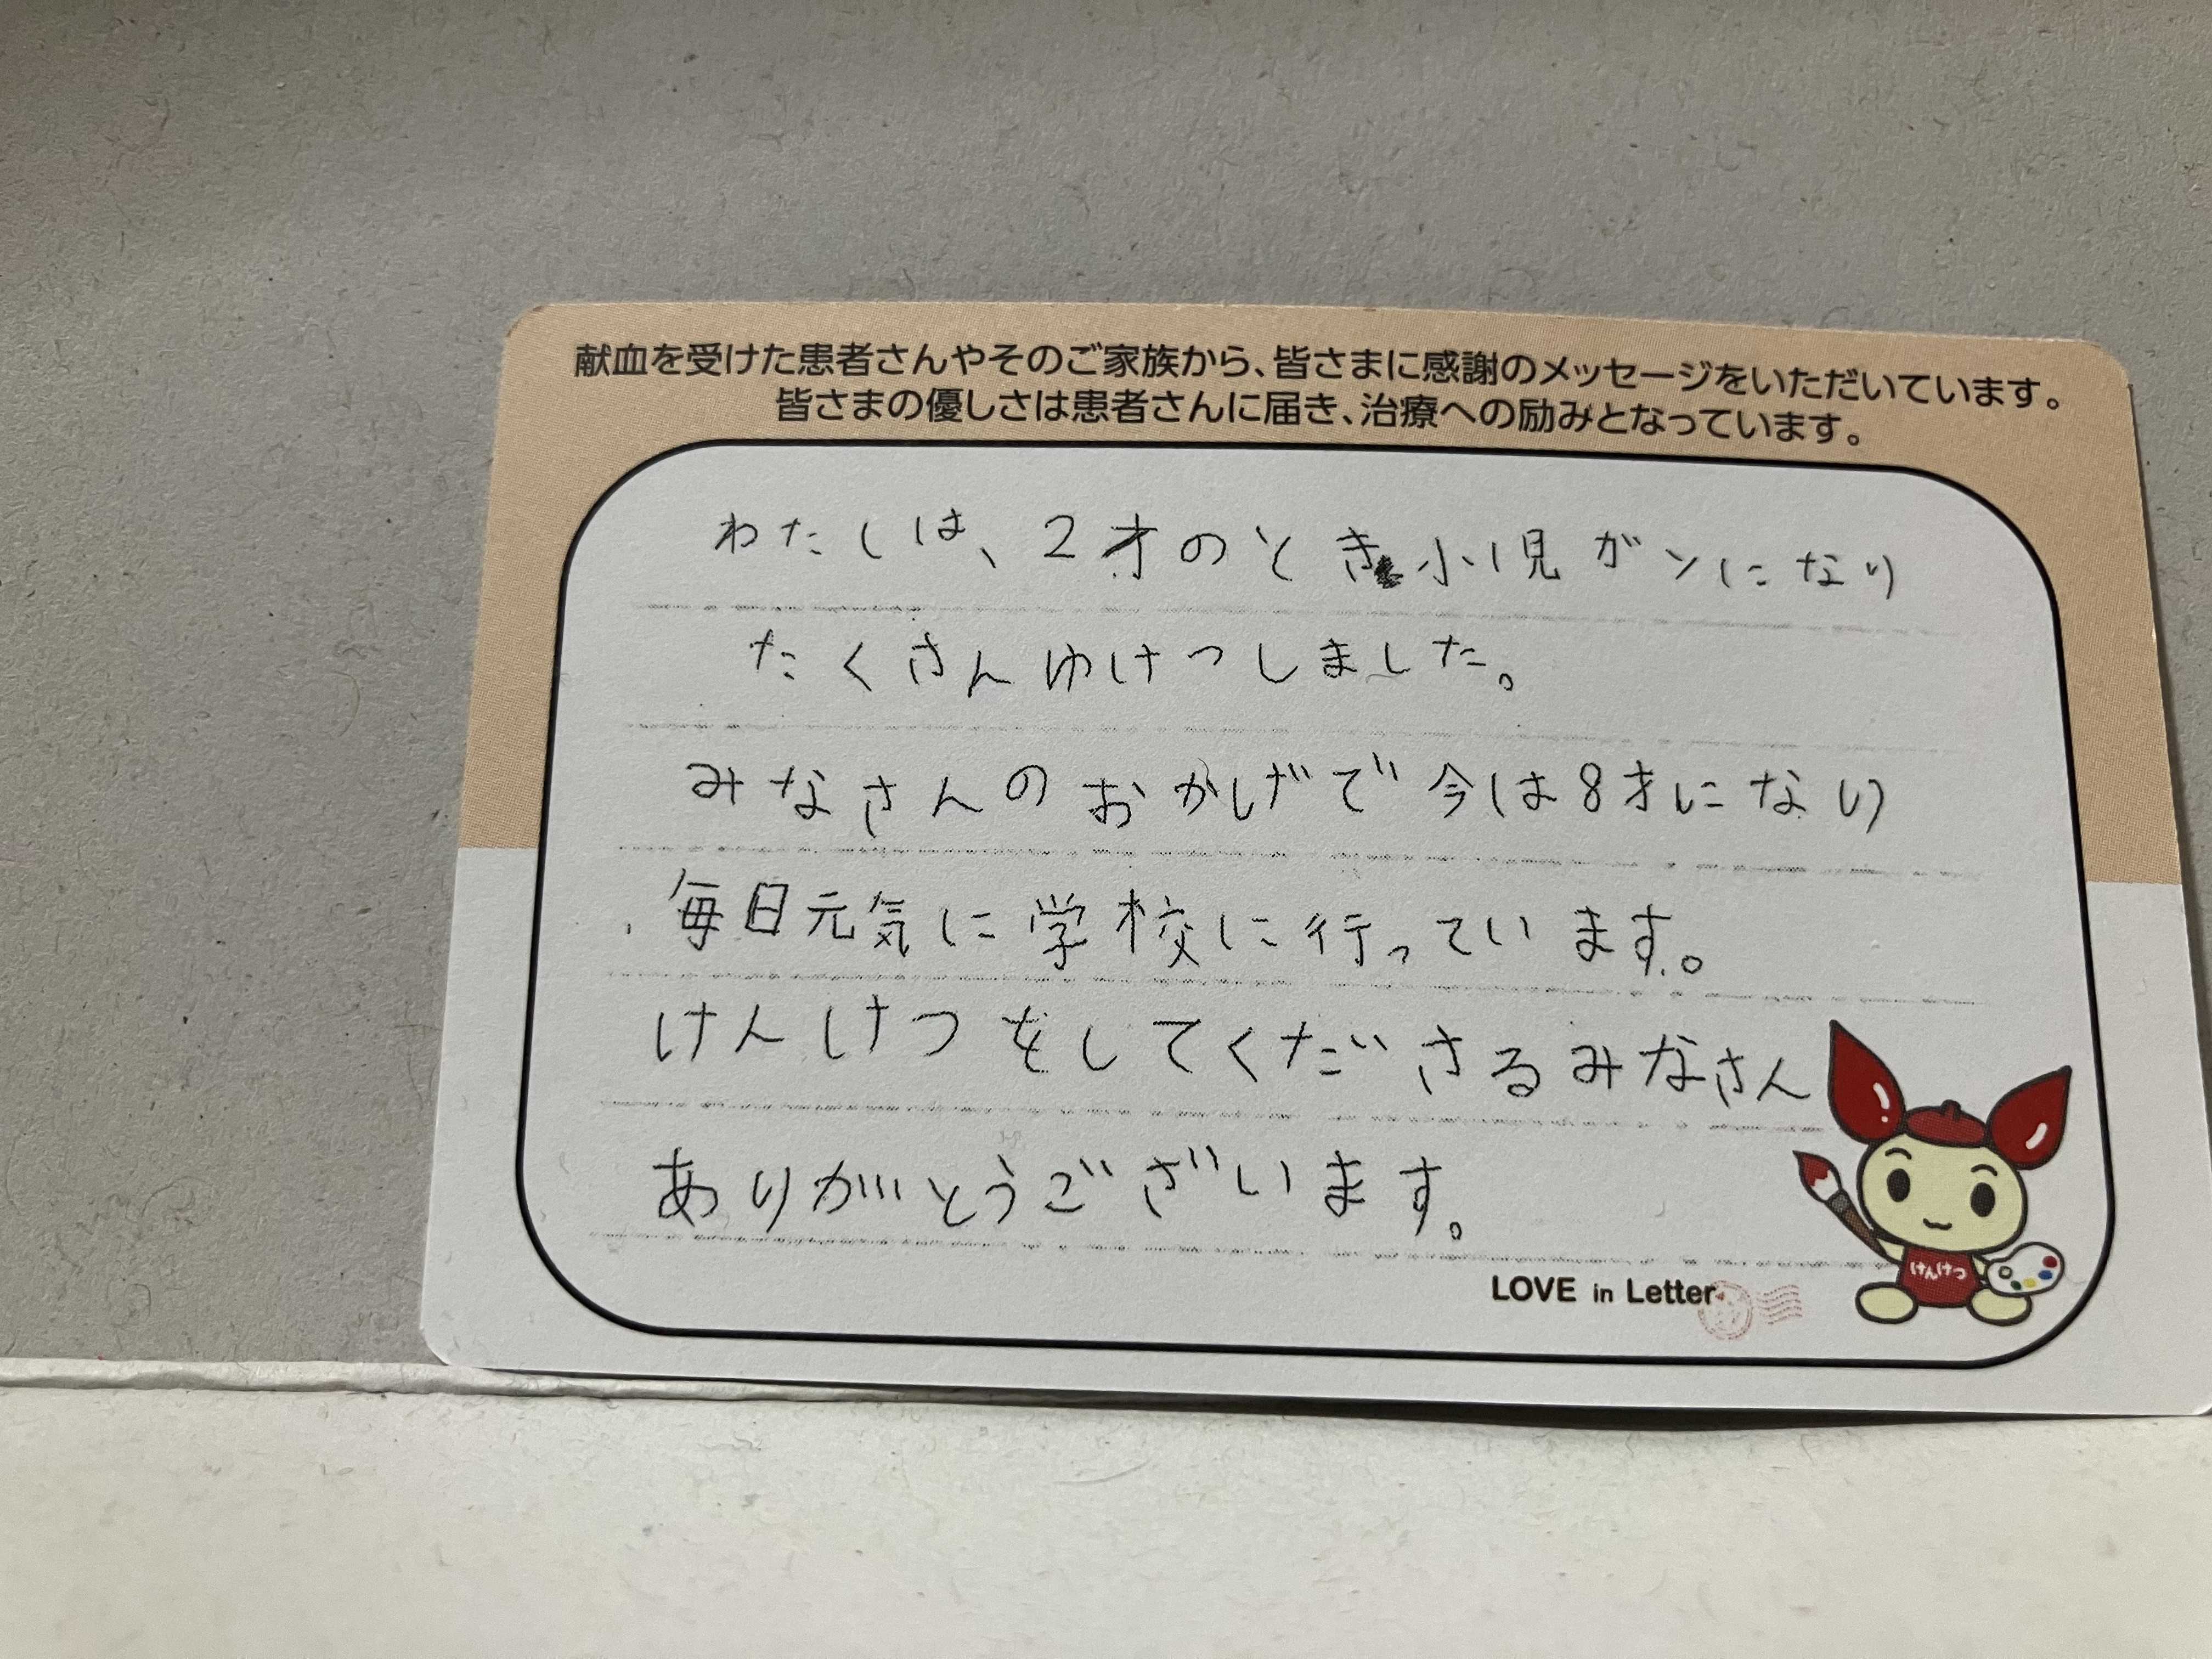 献血を受けた患者さんやそのご家族から、皆さまに感謝のメッセージをいただいています。
皆さまの優しさは患者さんに届き、治療への励みとなっています。
わたしは、2才のとき小児ガンになり
たくさんゆけつしました。
みなさんのおかげで今は8才になり
毎日元気に学校に行っています。
けんけつをしてくださるみなさん
ありがとうございます。
けんけつ
LOVE in Letter